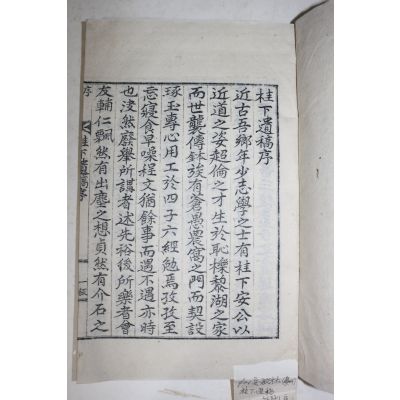 桂下遺稿序
近古吾鄉年少志學之士有桂下安公以
近道之姿超倫之才生於恥櫟黎湖之家
而世襲傳鉢族有蒼愚農窩之門而契設
琢玉專心用工於四子六經勉焉孜孜至
忘寢食早嗓程文猶餘事而遇不遇亦時
也浚然廢舉所謂者述先裕後所樂者會
友輔仁飄然有出塵之想貞然有介石之
序
桂下遺稿序
一